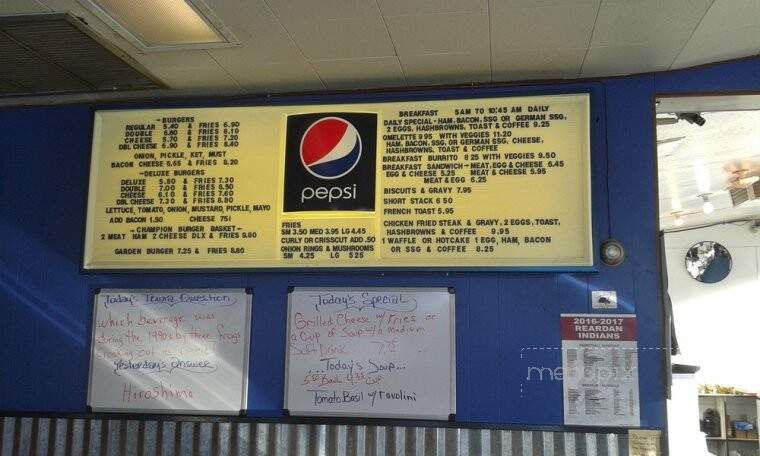 - BURGERS
REGULAR 5.40 & FRIES 6.90
DOUBLE 6.60 & FRIES 8.10
CHEESE 5.70 & FRIES 7.20
DBL CHEESE 6.90 & FRIES 8.40
ONION, PICKLE, KET, MUST
BACON CHEESE 6.65 & FRIES 8.20
- DELUXE BURGERS
DELUXE 5.80 & FRIES 7.30
DOUBLE 7.00 & FRIES 8.50
CHEESE 6.10 & FRIES 7.60
DBL CHEESE 7.30 & FRIES 8.80
LETTUCE, TOMATO, ONION, MUSTARD, PICKLE, MAYO
ADD BACON 1.50 CHEESE 75¢
- CHAMPION BURGER BASKET -
2 MEAT HAM 2 CHEESE DLX & FRIES 9.80
GARDEN BURGER 7.25 & FRIES 8.80
pepsi
FRIES
SM 3.50 MED 3.95 LG 4.45
CURLY OR CRISSCUT ADD .50
ONION RINGS & MUSHROOMS
SM 4.25 LG 5 25
BREAKFAST 5AM TO 10:45 AM DAILY
DAILY SPECIAL - HAM, BACON, SSG OR GERMAN SSG,
2 EGGS, HASHBROWNS, TOAST & COFFEE 9.25
OMELETTE 9.95 WITH VEGGIES 11.20
HAM, BACON, SSG, OR GERMAN SSG, CHEESE,
HASHBROWNS, TOAST & COFFEE
BREAKFAST BURRITO 8 25 WITH VEGGIES 9.50
BREAKFAST SANDWICH - MEAT, EGG & CHEESE 6.45
EGG & CHEESE 5.25 MEAT & CHEESE 5.95
MEAT & EGG 6.25
BISCUITS & GRAVY 7.95
SHORT STACK 6 50
FRENCH TOAST 5.95
CHICKEN FRIED STEAK & GRAVY, 2 EGGS, TOAST,
HASHBROWNS & COFFEE 9.95
1 WAFFLE OR HOTCAKE 1 EGG, HAM, BACON
OR SSG & COFFEE 8.25
Today's Trivia Question
Which beverage was
during the 1990s by three frogs
croaking out its
Yesterday's Answer
Hiroshima
Today's Special
Grilled Cheese w/ Fries or
a Cup of Soup w/ a medium
Soft Drink 7.75
...Today's Soup...
5.50 Bowl 4.35 Cup
Tomato Basil w/ravolini
2016-2017
REARDAN
INDIANS
menupix